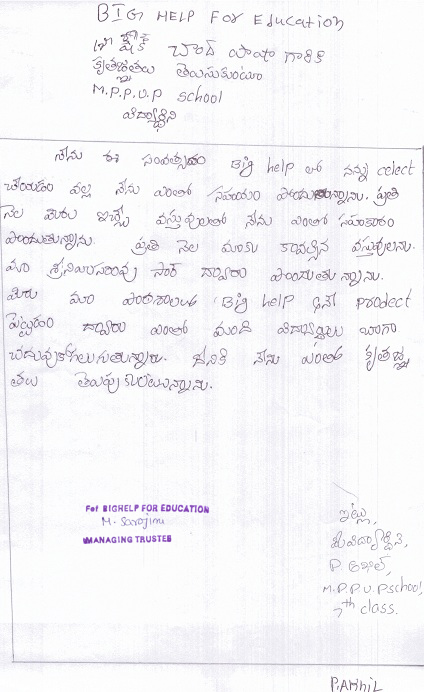 BIG HELP For Education
చాంద్ పాషా గారికి
కృతజ్ఞతలు తెలుసుకుంటూ
M.P.P.U.P school
విద్యార్థిని
నేను ఈ సంవత్సరం Big help లో నన్ను celect
చేయడం వల్ల నేను ఎంతో సహాయం పొందుతున్నాను. ప్రతి
నెల మీరు ఇచ్చే వస్తువులతో నేను ఎంతో సహకారం
పొందుతున్నాను. ప్రతి నెల మాకు కావల్సిన వస్తువులను.
మా సార్ ద్వారా పొందుతున్నాను.
మీరు మా పాఠశాలకు Big help అనే Prodect
పెట్టడం ద్వారా ఎంతో మంది విద్యార్థులు బాగా
చదువుకోగలుగుతున్నారు. దీనికి నేను ఎంతో కృతజ్ఞ
తలు తెలుపుకుంటున్నాను.
For BIGHELP FOR EDUCATION
M. Sarojini
MANAGING TRUSTEE
ఇట్లు,
మీ విద్యార్థిని,
P అఖిల్,
M.P.P.U.P school,
7th class.
P.AKhiL